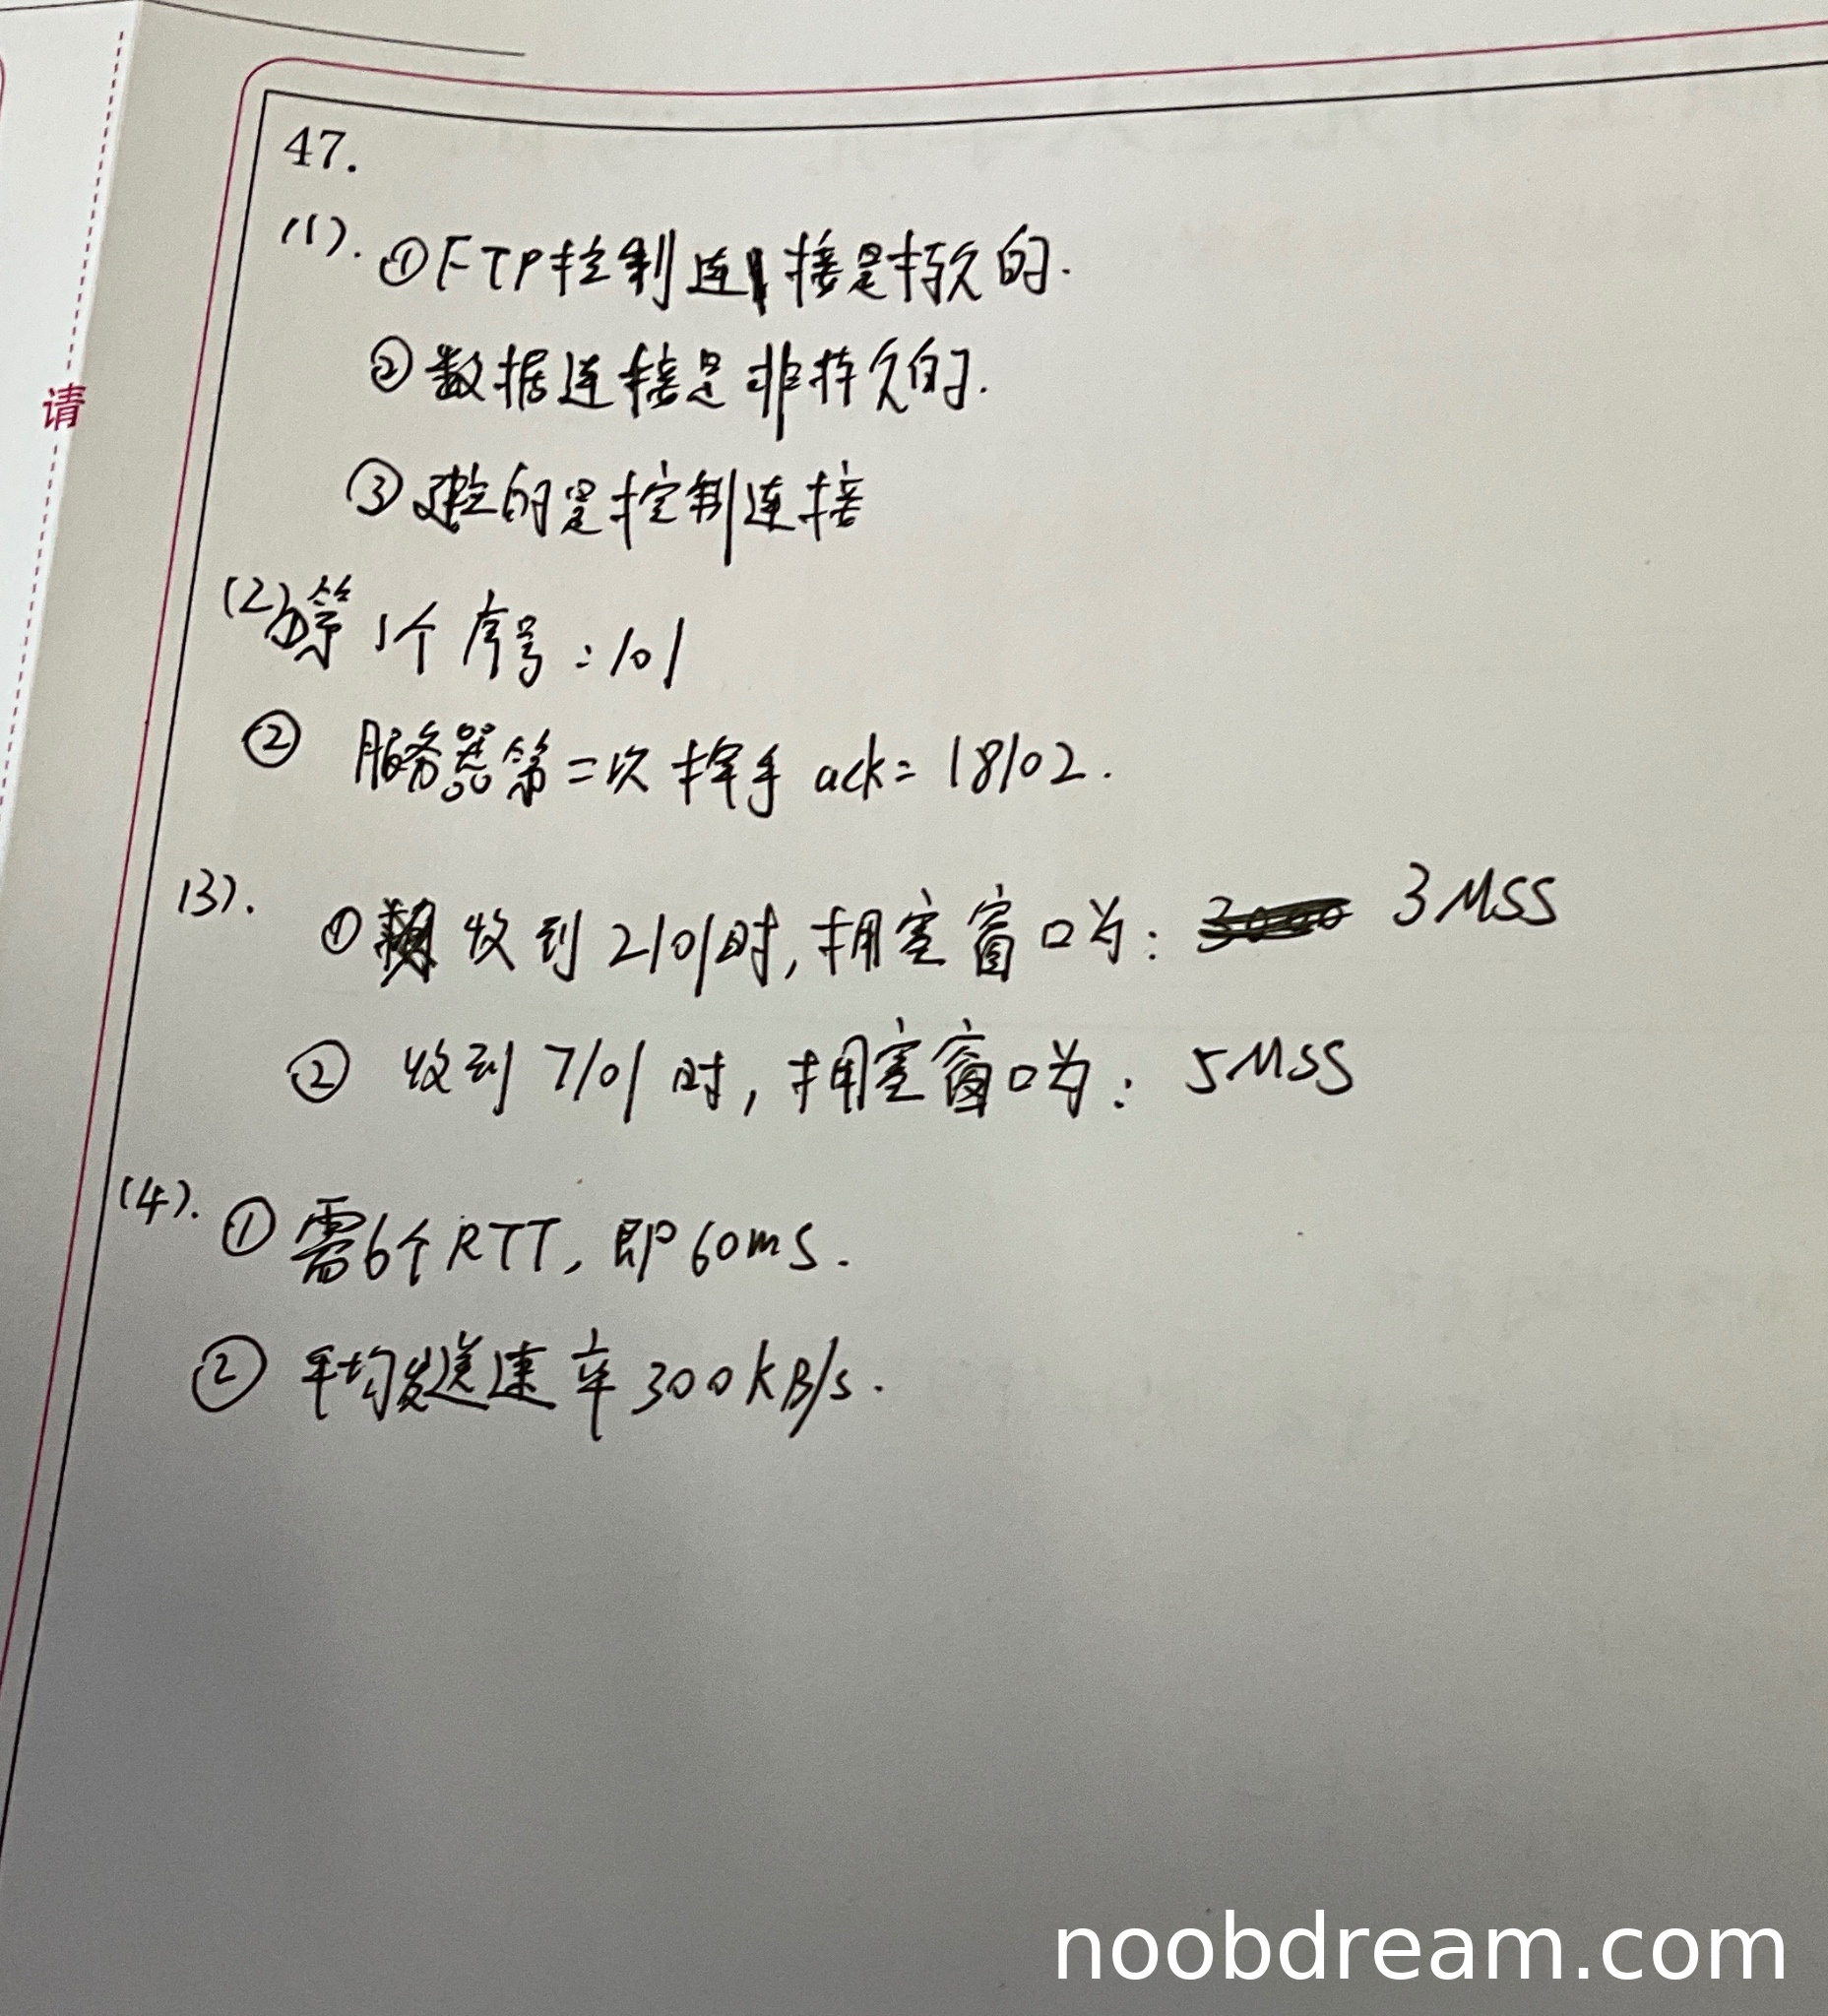 47.
(1). ①FTP控制连接是持久的.
②数据连接是非持久的.
③建立的是控制连接
(2)①第1个序号:101
② 服务器第二次挥手 ack=18102.
(3). ① 收到2101时,拥塞窗口为: 3MSS
② 收到7101时,拥塞窗口为: 5MSS
(4). ①需6个RTT,即60ms.
② 平均发送速率300KB/s.
请
noobdream.com